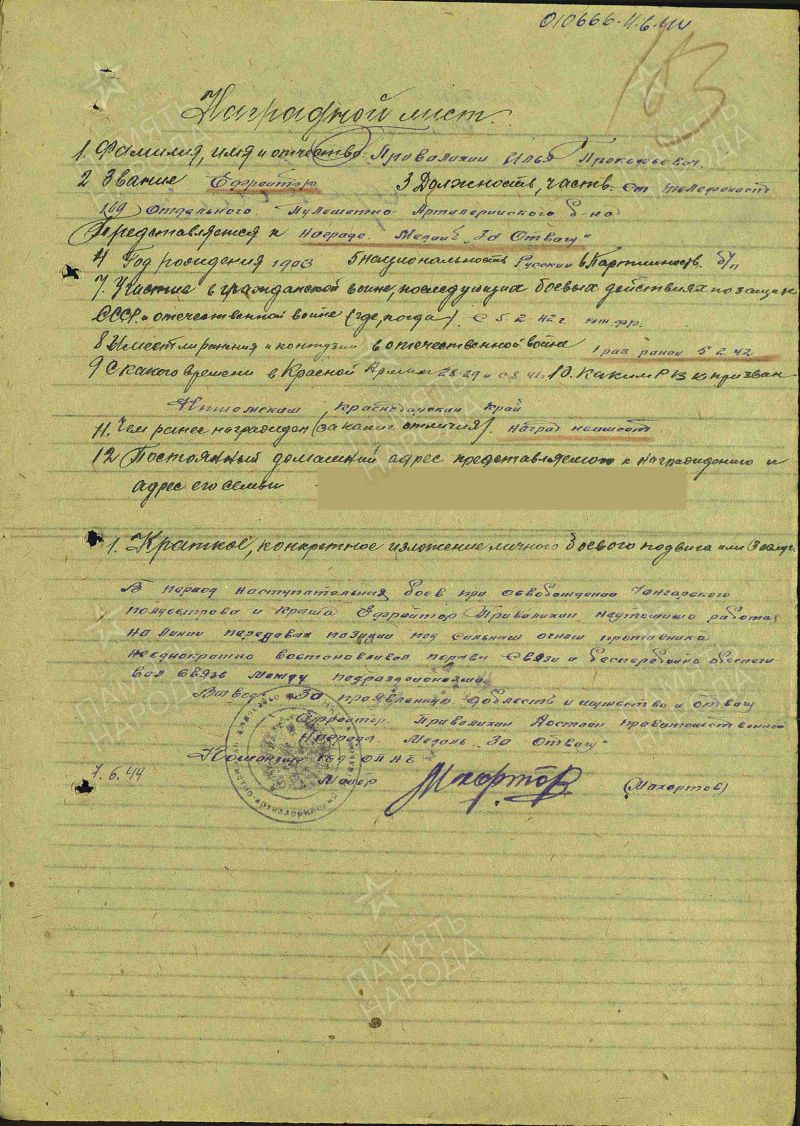 010666. 4.6.44
183
Наградной лист.
1. Фамилия, имя и отчество Привалихин Илья Прокофьевич.
2 Звание Ефрейтор 3 Должность, часть. Ст телефонист
169 Отдельного Пулеметно Артилерийского б-на
Представляется к Награде. Медаль "За Отвагу"
4 Год рождения 1903 5 Национальность Русский 6 Партийность. б/п
7. Участие в гражданской войне, последующих боевых действиях по защите
СССР и отечественной войне (где, когда) с 5 2 42 г
8 Имеет ли ранения и контузии в отечественной войне 1 раз ранен 5 2 42
9 С какого времени в Красной Армии 28-29 и с 8 41. 10. Каким РВК призван
Краснодарский Край
11. Чем ранее награжден (за какие отличия). Наград неимеет
12 Постоянный домашний адрес представляемого к награждению и
адрес его семьи
1. Краткое, конкретное изложение личного боевого подвига или заслуг.
В период наступательных боев при освобождении Чонгарского
полуострова и Крыма Ефрейтор Привалихин неутомимо работал
на линии передовых позиции под сильным огнем противника
неоднократно востанавливал порывы Связи и бесперебойно обеспечи
вал связь между подразделениями
Вывод: За проявленную доблесть и мужество и отвагу
Ефрейтор Привалихин Достоин правительственной
Награды Медаль "За Отвагу"
Командир 169 ОПАБ
7.6.44 Майор Махортов (Махортов)
ПАМЯТЬ НАРОДА